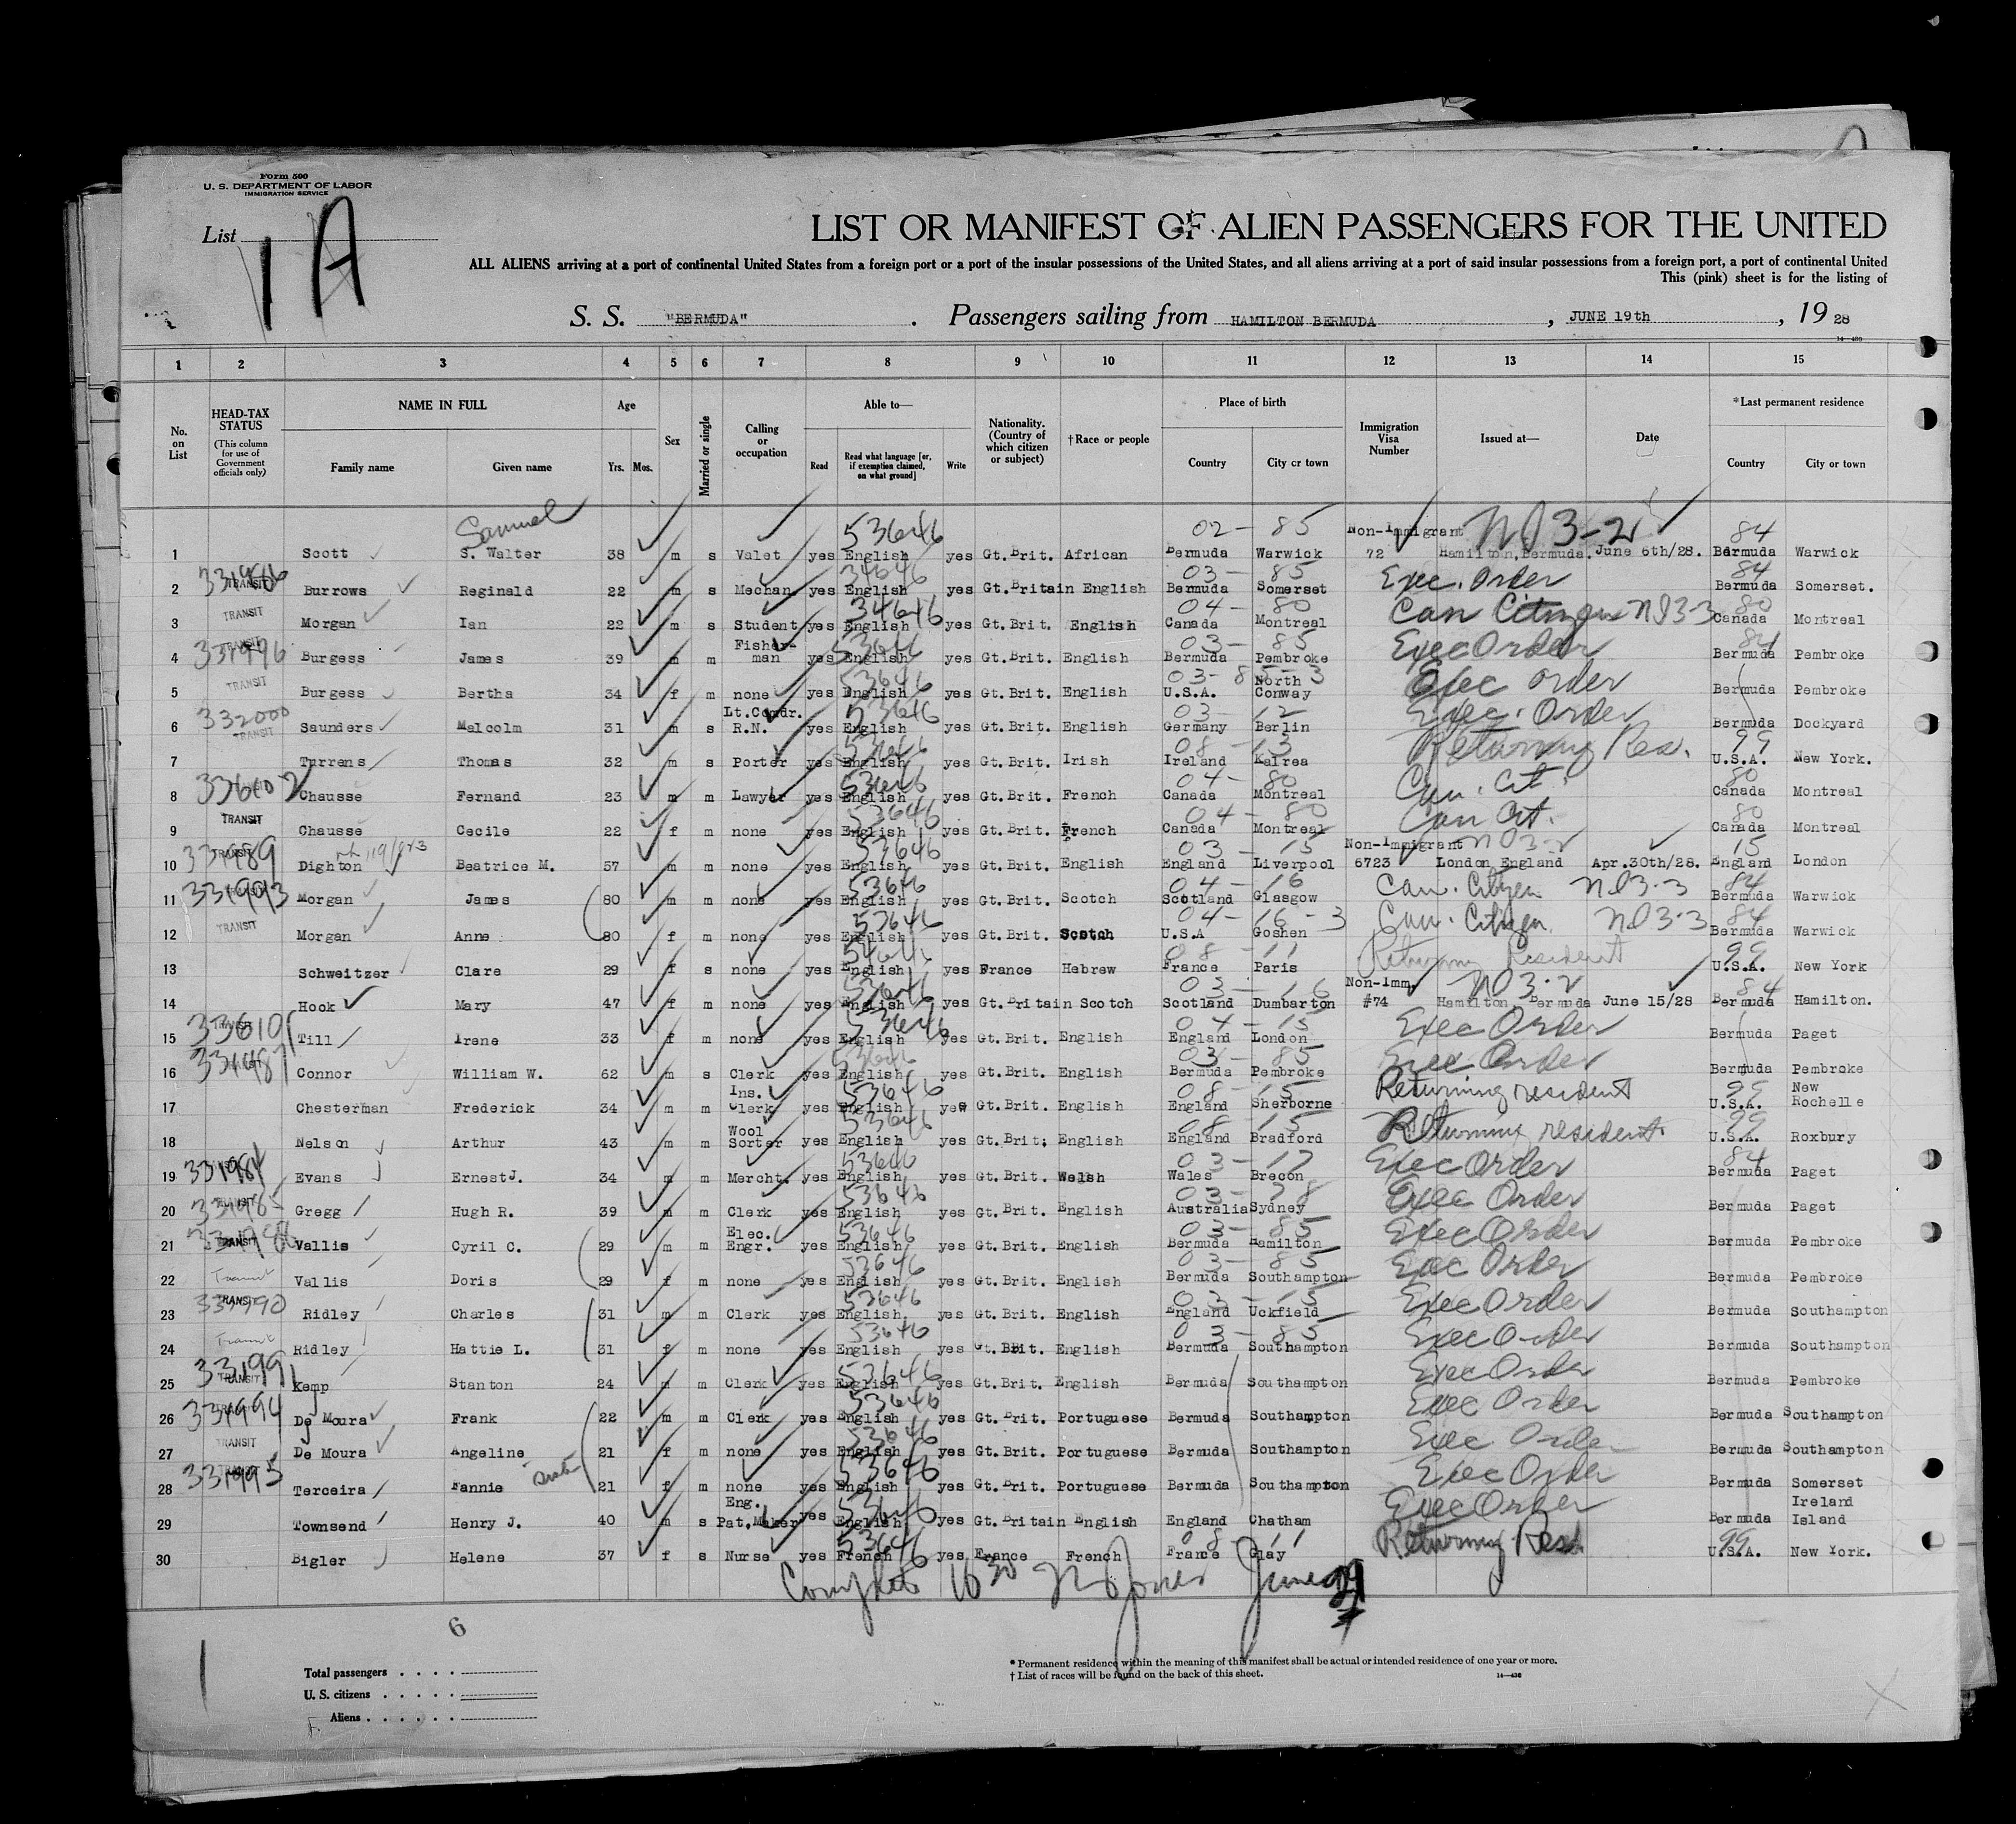 Form 500
U. S. DEPARTMENT OF LABOR
IMMIGRATION SERVICE
List 1A
LIST OR MANIFEST OF ALIEN PASSENGERS FOR THE UNITED
ALL ALIENS arriving at a port of continental United States from a foreign port or a port of the insular possessions of the United States, and all aliens arriving at a port of said insular possessions from a foreign port, a port of continental United
This (pink) sheet is for the listing of
S. S. "BERMUDA". Passengers sailing from HAMILTON BERMUDA, JUNE 19th, 1928
1 2 3 4 5 6 7 8 9 10 11 12 13 14 15
No. on List
HEAD-TAX STATUS (This column for use of Government officials only)
NAME IN FULL Family name Given name
Age Yrs. Mos.
Sex
Married or single
Calling or occupation
Able to— Read Read what language [or, if exemption claimed, on what ground] Write
Nationality. (Country of which citizen or subject)
†Race or people
Place of birth Country City or town
Immigration Visa Number
Issued at—
Date
*Last permanent residence Country City or town
Samuel 53646 02 - 85 Non-immigrant NO 3-2 84
1 Scott S. Walter 38 m s Valet yes English yes Gt.Brit. African Bermuda Warwick 72 Hamilton, Bermuda. June 6th/28. Bermuda Warwick
03 - 85 84
2 TRANSIT Burrows Reginald 22 m s Mechan. yes English yes Gt.Britain English Bermuda Somerset Exec. Order Bermuda Somerset.
34646 04 - 80 80
3 TRANSIT Morgan Ian 22 m s Student yes English yes Gt.Brit. English Canada Montreal Can Citizen NO3-3 Canada Montreal
53646 03 - 85 84
4 331996 TRANSIT Burgess James 39 m m Fisher-man yes English yes Gt.Brit. English Bermuda Pembroke Exec Order Bermuda Pembroke
53646 03 - 85 - 3
5 TRANSIT Burgess Bertha 34 f m none yes English yes Gt.Brit. English U.S.A. North Conway Exec Order Bermuda Pembroke
53646 03 - 12
6 332000 TRANSIT Saunders Malcolm 31 m s Lt.Comdr. R.N. yes English yes Gt.Brit. English Germany Berlin Exec. Order Bermuda Dockyard
53646 08 - 13 99
7 Turrens Thomas 32 m s Porter yes English yes Gt.Brit. Irish Ireland Kalrea Returning Res. U.S.A. New York.
53646 04 - 80 80
8 Chausse Fernand 23 m m Lawyer yes English yes Gt.Brit. French Canada Montreal Can. Cit. Canada Montreal
53646 04 - 80 80
9 TRANSIT Chausse Cecile 22 f m none yes English yes Gt.Brit. French Canada Montreal Can Cit. Canada Montreal
53646 03 - 15 Non-immigrant NO 3-2 15
10 331989 TRANSIT Dighton Beatrice M. 57 m m none yes English yes Gt.Brit. English England Liverpool 6723 London England Apr.30th/28. England London
53646 04 - 16 84
11 331993 Morgan James 80 m m none yes English yes Gt.Brit. Scotch Scotland Glasgow Can. Citizen NO3-3 Bermuda Warwick
53646 04 - 16 - 3 84
12 TRANSIT Morgan Anne 80 f m none yes English yes Gt.Brit. Scotch U.S.A Goshen Can. Citizen NO3-3 Bermuda Warwick
08 - 11 99
13 Schweitzer Clare 29 f s none yes English yes France Hebrew France Paris Returning Resident U.S.A. New York
53646 03 - 16 Non-Imm. NO 3-2 84
14 Hook Mary 47 f m none yes English yes Gt.Britain Scotch Scotland Dumbarton #74 Hamilton Bermuda June 15/28 Bermuda Hamilton.
53646 04 - 15
15 Till Irene 33 f m none yes English yes Gt.Brit. English England London Exec Order Bermuda Paget
53646 03 - 85
16 Connor William W. 62 m s Clerk yes English yes Gt.Brit. English Bermuda Pembroke Exec Order Bermuda Pembroke
53646 08 - 15 99
17 Chesterman Frederick 34 m m Ins. Clerk yes English yes Gt.Brit. English England Sherborne Returning resident U.S.A. New Rochelle
53646 08 - 15 99
18 Nelson Arthur 43 m m Wool Sorter yes English yes Gt.Brit. English England Bradford Returning resident U.S.A. Roxbury
53646 03 - 17 84
19 331984 Evans Ernest J. 34 m m Mercht. yes English yes Gt.Brit. Welsh Wales Brecon Exec Order Bermuda Paget
53646 03 - 78
20 331985 TRANSIT Gregg Hugh R. 39 m m Clerk yes English yes Gt.Brit. English Australia Sydney Exec Order Bermuda Paget
53646 03 - 85
21 TRANSIT Vallis Cyril C. 29 m m Elec. Engr. yes English yes Gt.Brit. English Bermuda Hamilton Exec Order Bermuda Pembroke
53646 03 - 85
22 Transit Vallis Doris 29 f m none yes English yes Gt.Brit. English Bermuda Southampton Exec Order Bermuda Pembroke
53646 03 - 15
23 331990 TRANSIT Ridley Charles 31 m m Clerk yes English yes Gt.Brit. English England Uckfield Exec Order Bermuda Southampton
53646 03 - 85
24 Transit Ridley Hattie L. 31 f m none yes English yes Gt.Brit. English Bermuda Southampton Exec Order Bermuda Southampton
53646
25 331991 TRANSIT Kemp Stanton 24 m m Clerk yes English yes Gt.Brit. English Bermuda Southampton Exec Order Bermuda Pembroke
53646
26 331994 De Moura Frank 22 m m Clerk yes English yes Gt.Brit. Portuguese Bermuda Southampton Exec Order Bermuda Southampton
53646
27 TRANSIT De Moura Angeline 21 f m none yes English yes Gt.Brit. Portuguese Bermuda Southampton Exec Order Bermuda Southampton
53646
28 331995 Terceira Fannie sister 21 f m none yes English yes Gt.Brit. Portuguese Bermuda Southampton Exec Order Bermuda Somerset
53646
29 Townsend Henry J. 40 m s Eng. Pat.Maker yes English yes Gt.Britain English England Chatham Exec Order Bermuda Ireland Island
53646 08 11 99
30 Bigler Helene 37 f s Nurse yes French yes France French France Glay Returning Res. U.S.A. New York.
Complete 1030 Jones June
6
Total passengers
U. S. citizens
Aliens
* Permanent residence within the meaning of this manifest shall be actual or intended residence of one year or more.
† List of races will be found on the back of this sheet.